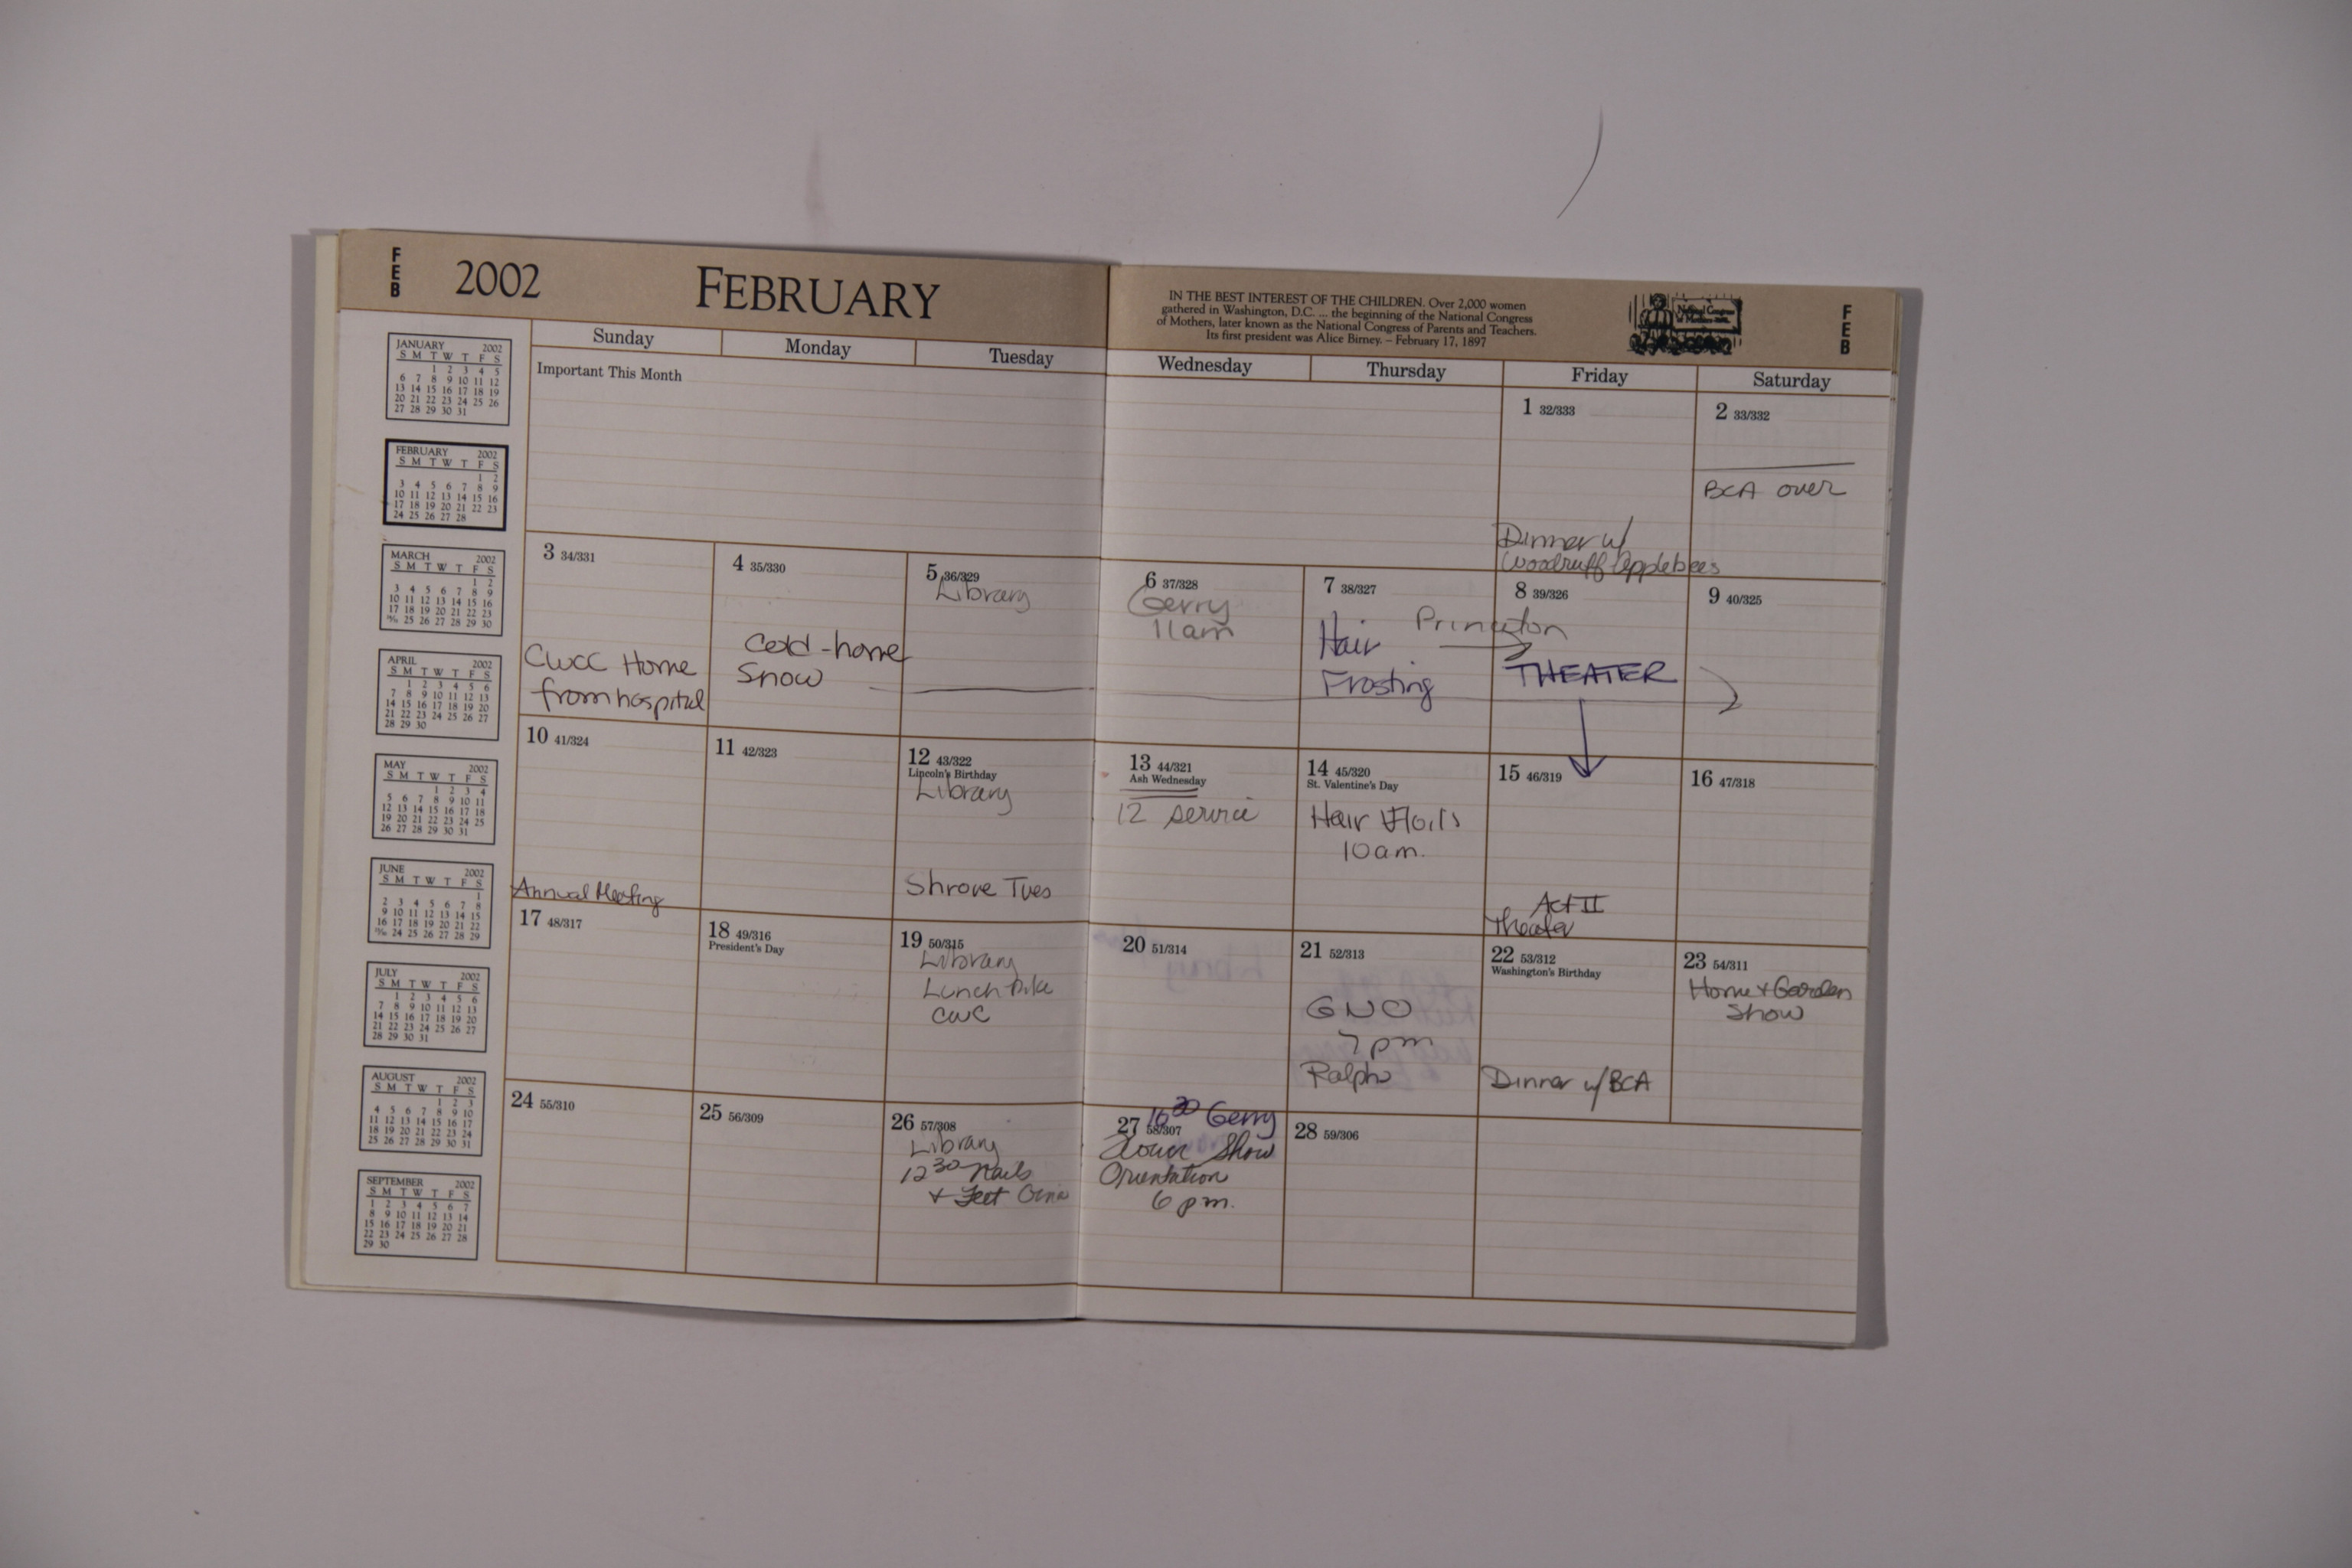 FEB
2002
FEBRUARY
IN THE BEST INTEREST OF THE CHILDREN. Over 2,000 women
gathered in Washington, D.C. ... the beginning of the National Congress
of Mothers, later known as the National Congress of Parents and Teachers.
Its first president was Alice Birney. – February 17, 1897
FEB
JANUARY 2002
S M T W T F S
1 2 3 4 5
6 7 8 9 10 11 12
13 14 15 16 17 18 19
20 21 22 23 24 25 26
27 28 29 30 31
FEBRUARY 2002
S M T W T F S
1 2
3 4 5 6 7 8 9
10 11 12 13 14 15 16
17 18 19 20 21 22 23
24 25 26 27 28
MARCH 2002
S M T W T F S
1 2
3 4 5 6 7 8 9
10 11 12 13 14 15 16
17 18 19 20 21 22 23
24/31 25 26 27 28 29 30
APRIL 2002
S M T W T F S
1 2 3 4 5 6
7 8 9 10 11 12 13
14 15 16 17 18 19 20
21 22 23 24 25 26 27
28 29 30
MAY 2002
S M T W T F S
1 2 3 4
5 6 7 8 9 10 11
12 13 14 15 16 17 18
19 20 21 22 23 24 25
26 27 28 29 30 31
JUNE 2002
S M T W T F S
1
2 3 4 5 6 7 8
9 10 11 12 13 14 15
16 17 18 19 20 21 22
23/30 24 25 26 27 28 29
JULY 2002
S M T W T F S
1 2 3 4 5 6
7 8 9 10 11 12 13
14 15 16 17 18 19 20
21 22 23 24 25 26 27
28 29 30 31
AUGUST 2002
S M T W T F S
1 2 3
4 5 6 7 8 9 10
11 12 13 14 15 16 17
18 19 20 21 22 23 24
25 26 27 28 29 30 31
SEPTEMBER 2002
S M T W T F S
1 2 3 4 5 6 7
8 9 10 11 12 13 14
15 16 17 18 19 20 21
22 23 24 25 26 27 28
29 30
Sunday Monday Tuesday Wednesday Thursday Friday Saturday
Important This Month
1 32/333
Dinner w/
Woodruff Applebees
2 33/332
BCA over
3 34/331
CWCC Home
from hospital
4 35/330
Cold - home
Snow
5 36/329
Library
6 37/328
Gerry
11am
7 38/327
Princeton
Hair
Frosting
8 39/326
THEATER
9 40/325
10 41/324
Annual Meeting
11 42/323
12 43/322
Lincoln's Birthday
Library
Shrove Tues
13 44/321
Ash Wednesday
12 service
14 45/320
St. Valentine's Day
Hair
10 am.
15 46/319
Act II
Theater
16 47/318
17 48/317
18 49/316
President's Day
19 50/315
Library
Lunch
CWC
20 51/314
21 52/313
GNO
7 pm
Ralphs
22 53/312
Washington's Birthday
Dinner w/ BCA
23 54/311
Home & Garden
Show
24 55/310
25 56/309
26 57/308
Library
12 30 Nails
& Feet
27 58/307
10 30 Gerry
Flower Show
Orientation
6 pm.
28 59/306